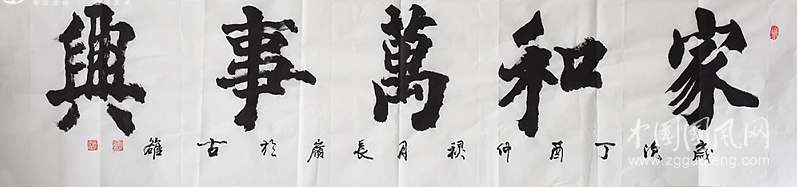 家和萬事興
歲次丁酉仲月長嶺於古雒
中国国风网
www.zgguofeng.com